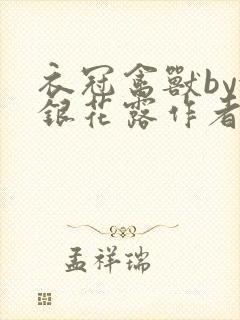 衣冠禽獸by
銀花露作者
孟祥瑞